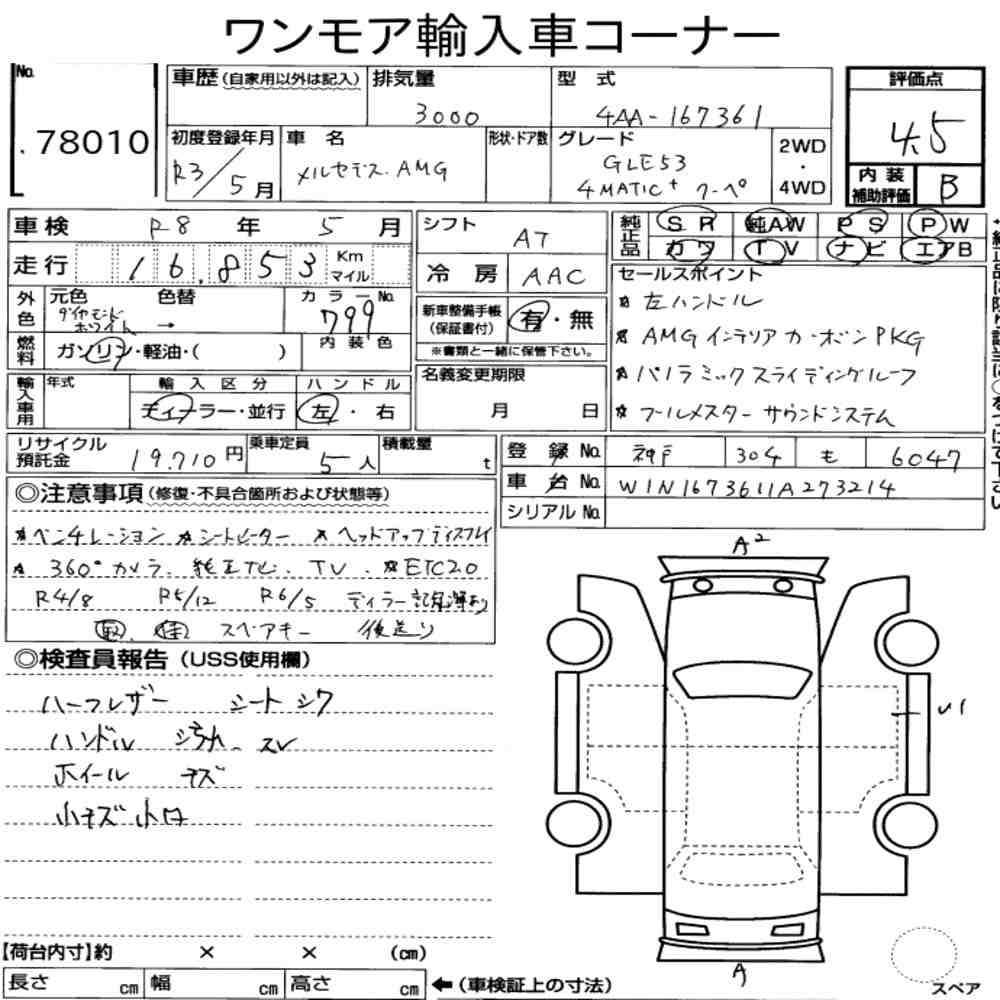 ワンモア輸入車コーナー
No. 78010
車歴(自家用以外は記入)
排気量 3000
型式 4AA-167361
初度登録年月 R3/5月
車名 メルセデス.AMG
形状・ドア数
グレード GLE53 4MATIC+ クーペ
2WD・4WD
評価点 4.5
内装補助評価 B
車検 R8年 5月
走行 16,853 Km マイル
シフト AT
冷房 AAC
純正品 SR 純AW PS PW
カワ TV ナビ エアB
外色 元色 ダイヤモンドホワイト → 色替
カラーNo. 799
内装色
燃料 ガソリン・軽油・( )
新車整備手帳(保証書付) 有・無
※書類と一緒に保管下さい。
セールスポイント
☆左ハンドル
☆AMGインテリアカーボンPKG
☆パノラミックスライディングルーフ
☆ブールメスターサウンドシステム
輸入車用 年式
輸入区分 ディーラー・並行
ハンドル 左・右
名義変更期限 月 日
リサイクル預託金 19,710円
乗車定員 5人
積載量 t
登録No. 神戸 304 も 6047
車台No. W1N1673611A273214
シリアルNo.
◎注意事項(修復・不具合箇所および状態等)
☆ベンチレーション ☆シートヒーター ☆ヘッドアップディスプレイ
☆360°カメラ、純正ナビ、TV、☆ETC2.0
R4/8 R5/12 R6/5 ディーラー記録簿より
取、保 スペアキー 後送り
◎検査員報告(USS使用欄)
ハーフレザー シートシワ
ハンドル 汚れ、スレ
ホイール キズ
小キズ小凹
A2
U1
A
【荷台内寸】約 × × (cm)
長さ cm 幅 cm 高さ cm ←(車検証上の寸法)
スペア